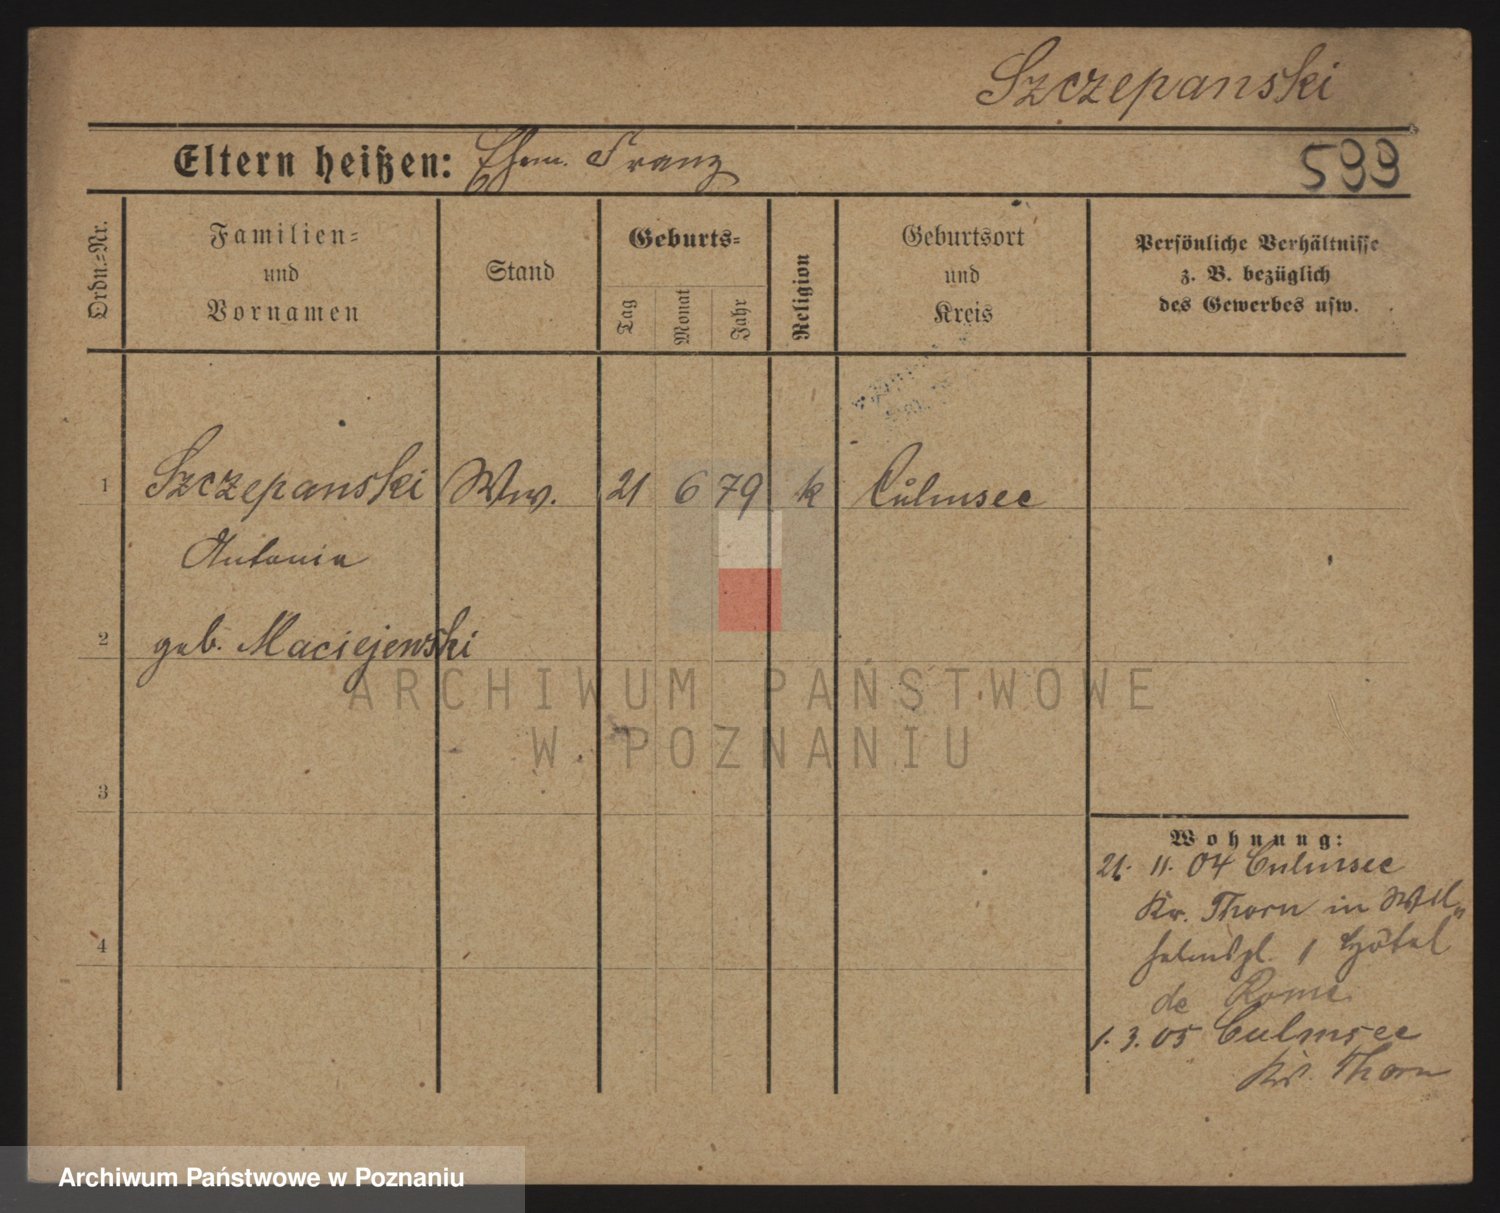 Szczepanski
Eltern heißen: Ehem. Franz
599
Ordn.-Nr.
Familien-
und
Vornamen
Stand
Geburts-
Tag
Monat
Jahr
Religion
Geburtsort
und
Kreis
Persönliche Verhältnisse
z. B. bezüglich
des Gewerbes usw.
1 Szczepanski Ww. 21 6 79 k Culmsee
Antonia
2 geb. Maciejewski
ARCHIWUM PAŃSTWOWE
W POZNANIU
3
Wohnung:
21. 11. 04 Culmsee
Kr. Thorn in Wil„
helmspl. 1 Hôtel
4
de Rome
1. 3. 05 Culmsee
Kr. Thorn
Archiwum Państwowe w Poznaniu